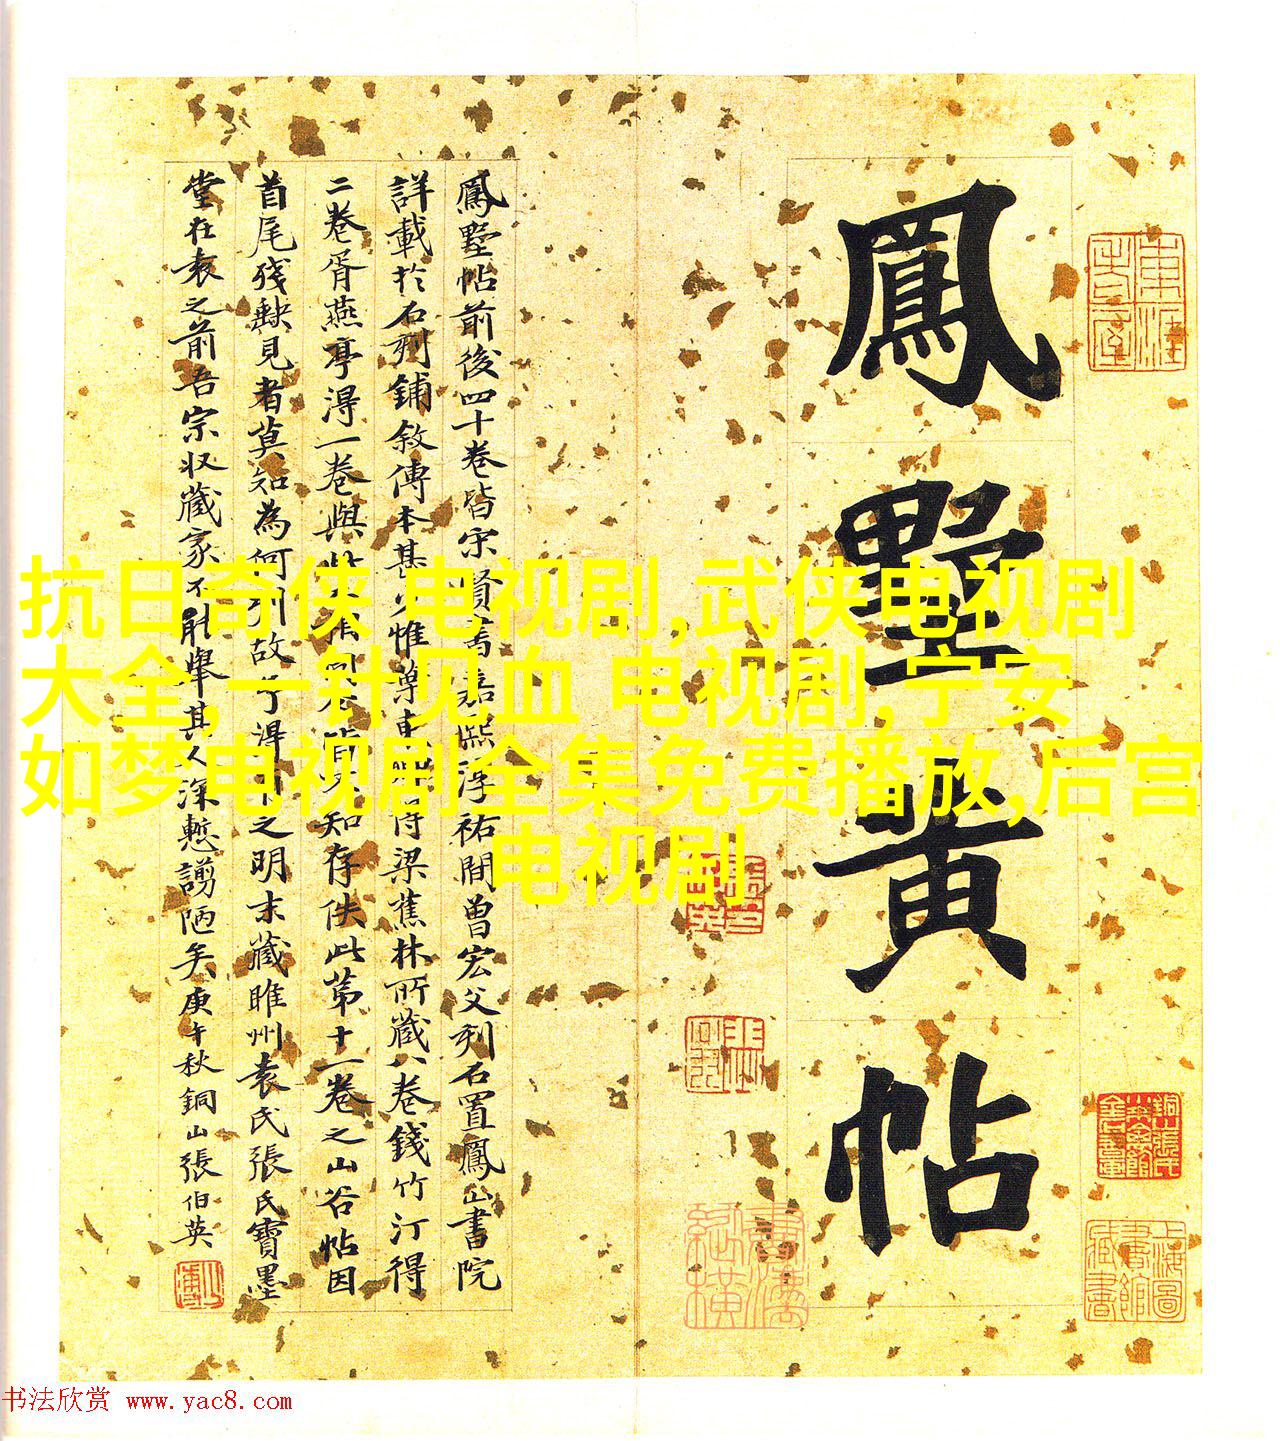 鳳墅黃帖
鳳墅帖前後四十卷皆宋賢書嘉熙淳祐間曾宏父刻石置鳳山書院
詳載於石刻鋪敘傳本甚少惟葉東卿得梁蕉林所藏八卷錢竹汀得
二卷胥燕亭淂一卷與此
知存佚此第十一卷之山谷帖因
首尾殘缺見者莫知為何刻故予淂
之明末藏睢州袁氏張氏寶墨
堂在袁之前吾宗収藏家不能舉其人深慙謭陋矣庚午秋銅山張伯英
抗日奇侠 电视剧,武侠电视剧
大全,一针见血 电视剧,宁安
如梦电视剧全集免费播放,后宫
电视剧
上海圖書館藏書
书法欣赏 www.yac8.com